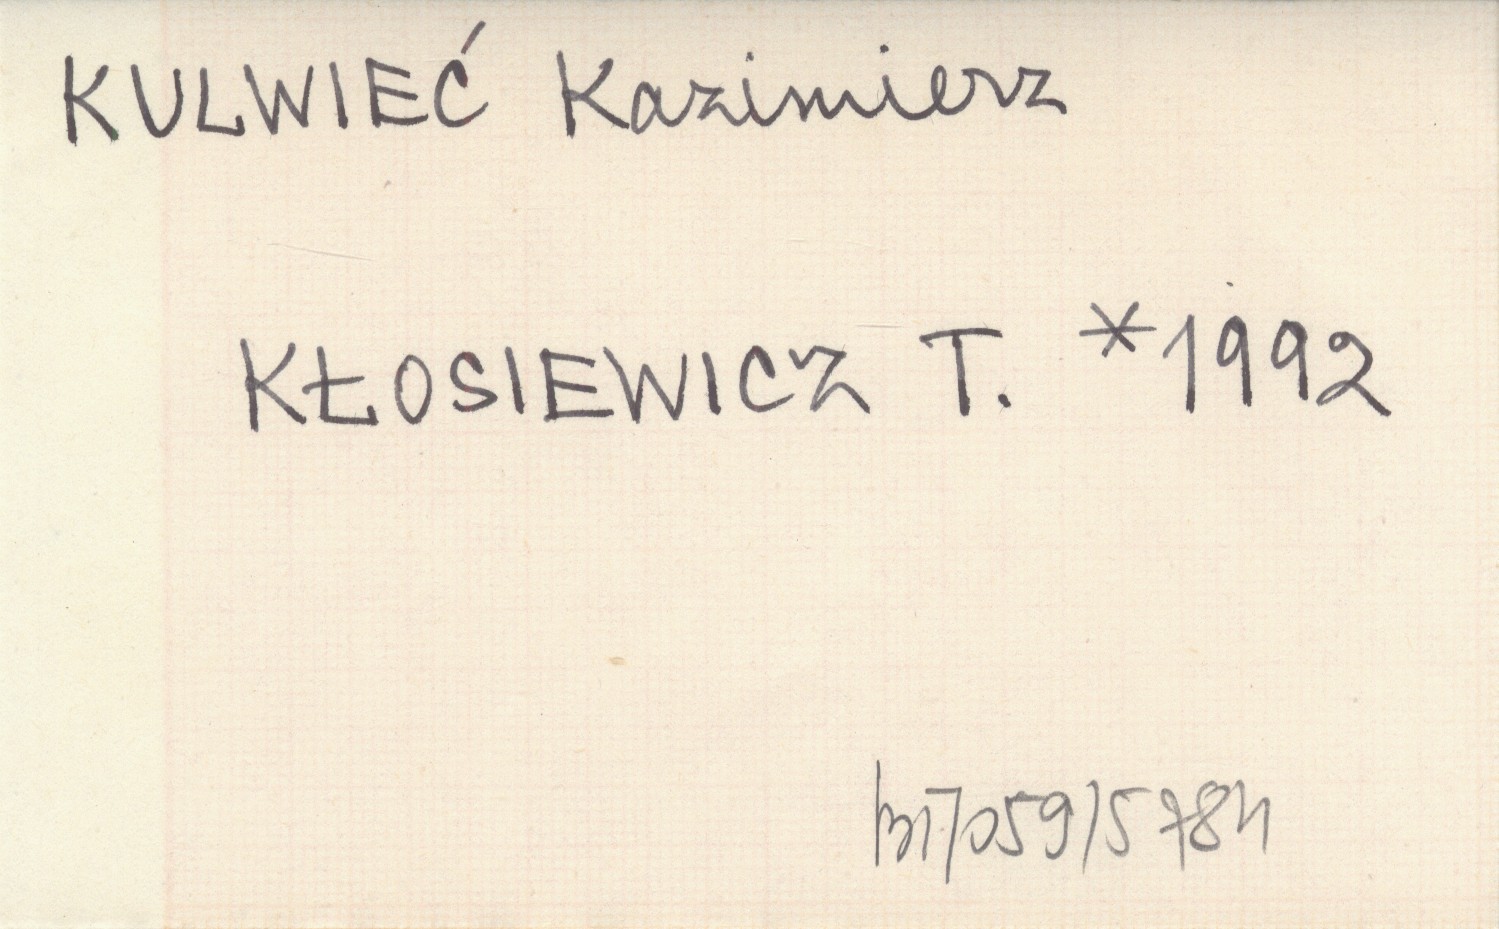 KULWIEĆ Kazimierz
KŁOSIEWICZ T. *1992